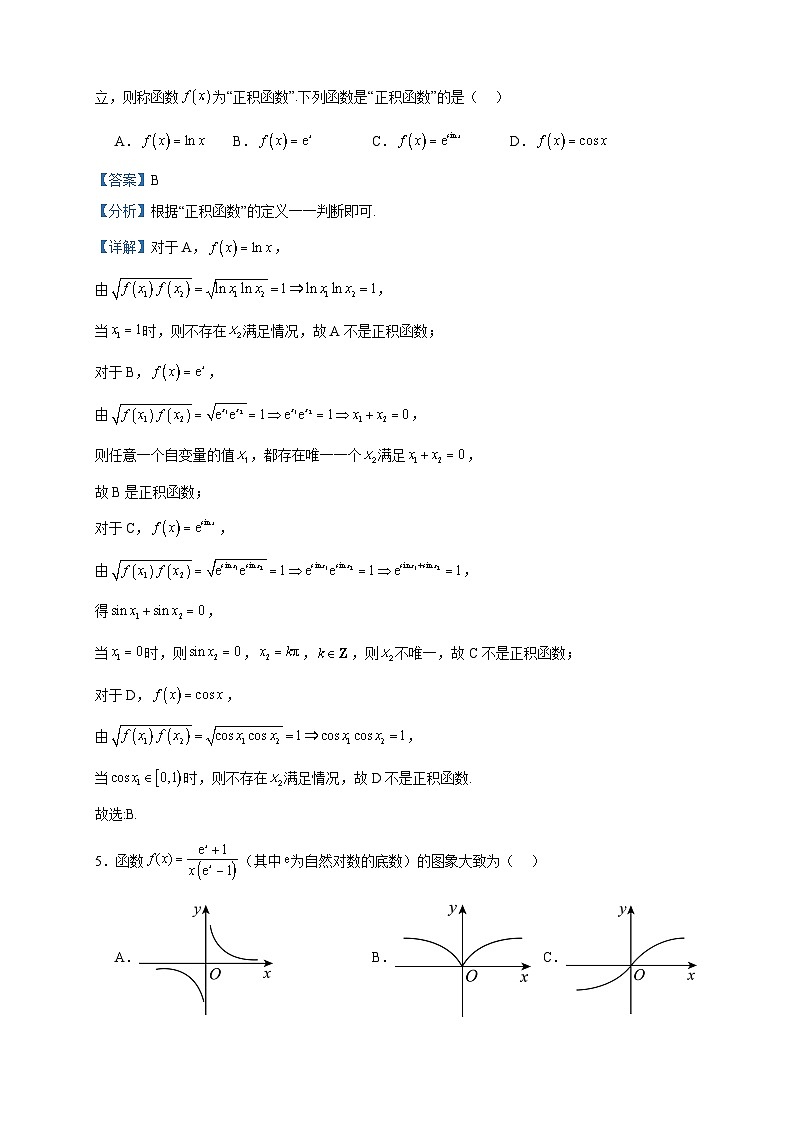 立，则称函数 f(x) 为“正积函数”.下列函数是“正积函数”的是（　）
A. f(x) = ln x　B. f(x) = e^x　C. f(x) = e^{sin x}　D. f(x) = cos x
【答案】B
【分析】根据“正积函数”的定义一一判断即可.
【详解】对于 A，f(x) = ln x，
由 √(f(x₁) f(x₂)) = √(ln x₁ ln x₂) = 1 ⇒ ln x₁ ln x₂ = 1，
当 x₁ = 1 时，则不存在 x₂ 满足情况，故 A 不是正积函数；
对于 B，f(x) = e^x，
由 √(f(x₁) f(x₂)) = √(e^{x₁} e^{x₂}) = 1 ⇒ e^{x₁} e^{x₂} = 1 ⇒ x₁ + x₂ = 0，
则任意一个自变量的值 x₁，都存在唯一一个 x₂ 满足 x₁ + x₂ = 0，
故 B 是正积函数；
对于 C，f(x) = e^{sin x}，
由 √(f(x₁) f(x₂)) = √(e^{sin x₁} e^{sin x₂}) = 1 ⇒ e^{sin x₁} e^{sin x₂} = 1 ⇒ e^{sin x₁+sin x₂} = 1，
得 sin x₁ + sin x₂ = 0，
当 x₁ = 0 时，则 sin x₂ = 0，x₂ = kπ，k ∈ Z，则 x₂ 不唯一，故 C 不是正积函数；
对于 D，f(x) = cos x，
由 √(f(x₁) f(x₂)) = √(cos x₁ cos x₂) = 1 ⇒ cos x₁ cos x₂ = 1，
当 cos x₁ ∈ [0,1) 时，则不存在 x₂ 满足情况，故 D 不是正积函数.
故选:B.
5. 函数 f(x) = (e^x + 1)/(x(e^x − 1))（其中 e 为自然对数的底数）的图象大致为（　）
A. y O x　B. y O x　C. y O x